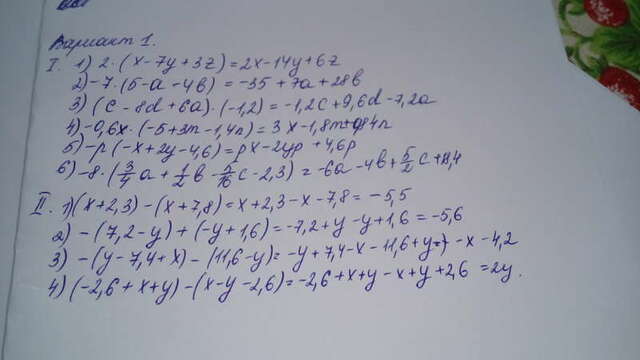 Вариант 1.
I. 1) 2·(x-7y+3z)=2x-14y+6z
2) -7·(5-a-4b) = -35+7a+28b
3) (c-8d+6a)·(-1,2)=-1,2c+9,6d-7,2a
4) -0,6x·(-5+3m-1,4n)=3x-1,8m+0,84n
5) -p·(-x+2y-4,6)=px-2yp+4,6p
6) -8·(3/4a+1/2b-5/16c-2,3)=-6a-4b+5/2c+18,4
II. 1) (x+2,3)-(x+7,8)=x+2,3-x-7,8=-5,5
2) -(7,2-y)+(-y+1,6)=-7,2+y-y+1,6=-5,6
3) -(y-7,4+x)-(11,6-y)=-y+7,4-x-11,6+y=-x-4,2
4) (-2,6+x+y)-(x-y-2,6)=-2,6+x+y-x+y+2,6=2y.